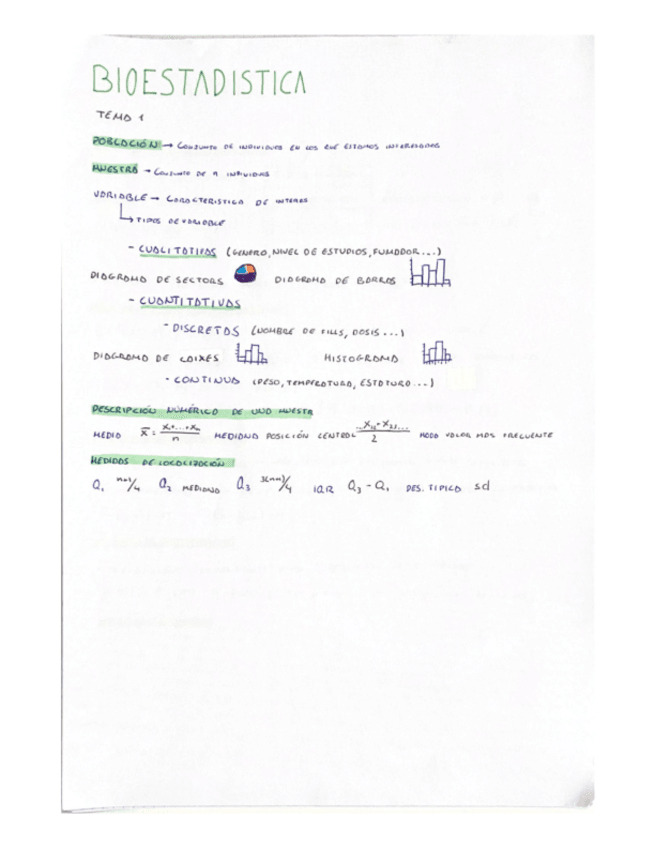 BIOESTADISTICA
TEMA 1
POBLACIÓN → CONJUNTO DE INDIVIDUOS EN LOS QUE ESTAMOS INTERESADOS
MUESTRA → CONJUNTO DE n INDIVIDUOS
VARIABLE → CARACTERISTICA DE INTERES
↳ TIPOS DE VARIABLE
- CUALITATIVAS (GENERO, NIVEL DE ESTUDIOS, FUMADOR...)
DIAGRAMA DE SECTORS DIAGRAMA DE BARRAS
- CUANTITATIVAS
- DISCRETAS (NOMBRE DE FILLS, DOSIS...)
DIAGRAMA DE CAIXES HISTOGRAMA
- CONTINUA (PESO, TEMPERATURA, ESTATURA...)
DESCRIPCIÓN NUMÉRICA DE UNA MUESTRA
MEDIA x̄ = x₁+...+xₙ / n MEDIANA POSICIÓN CENTRAL 2 MODA VALOR MAS FRECUENTE
MEDIDAS DE LOCALIZACIÓN
Q₁ n+1/4 Q₂ MEDIANA Q₃ 3(n+1)/4 IQR Q₃ - Q₁ DES. TIPICA sd